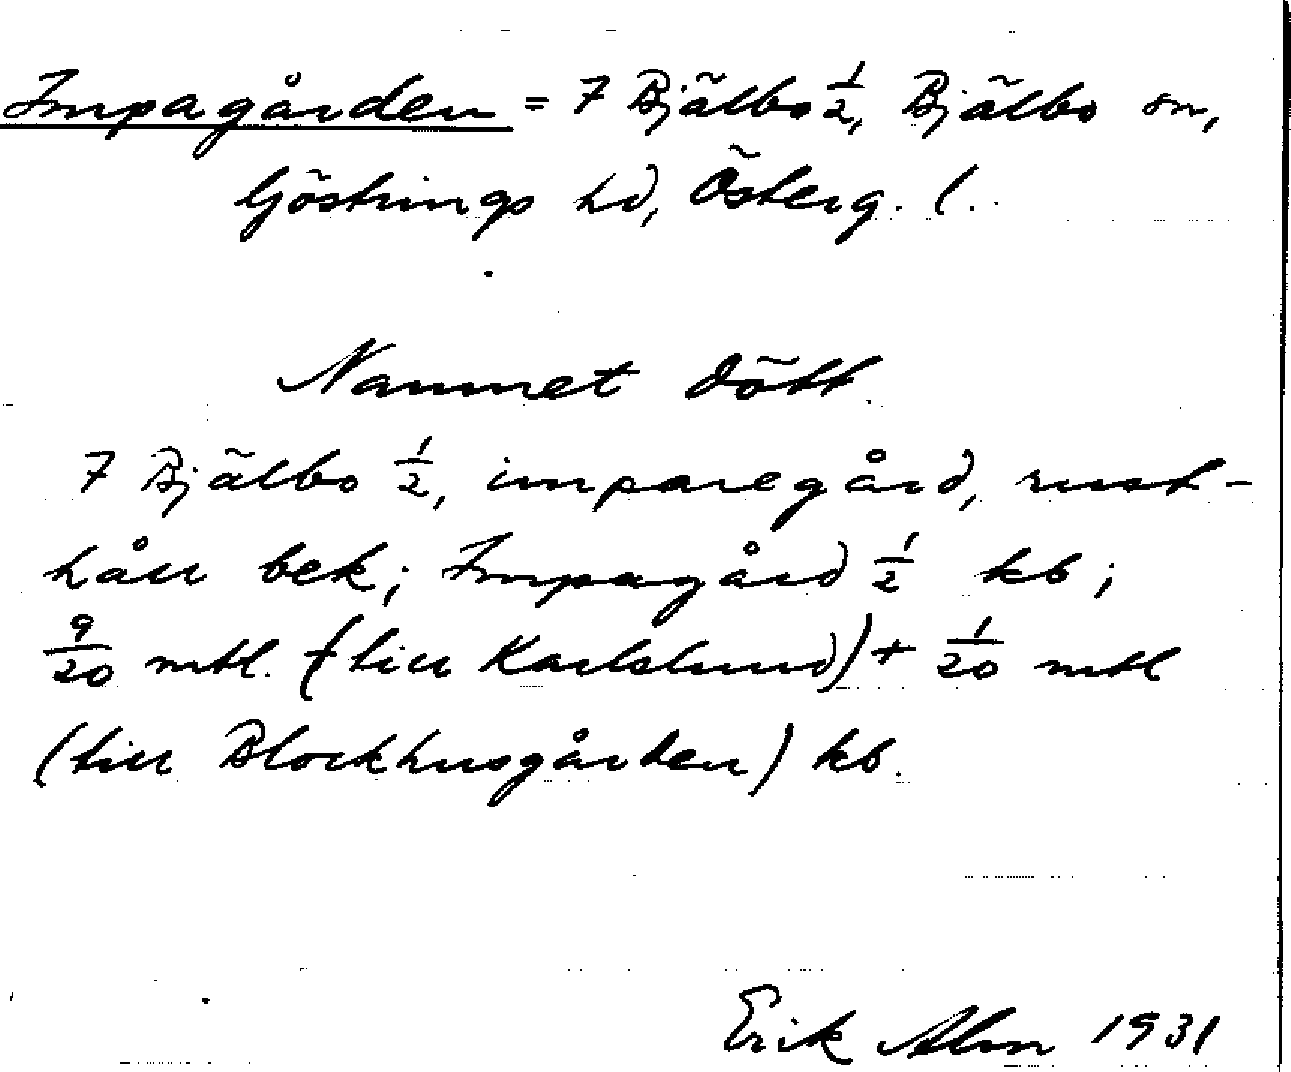 Impagården = 7 Bjälbo 1/2, Bjälbo sn,
Göstrings hd, Österg. l.
Namnet dött
7 Bjälbo 1/2, imparegård, rust-
håll bek; Impagård 1/2 kb;
9/20 mtl. (till Karlslund) + 1/20 mtl
(till Blockhusgården) kb.
Erik Alm 1931